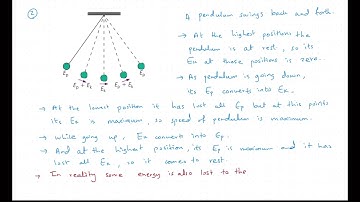 ②
A pendulum swings back and forth.
→ At the highest positions the
pendulum is at rest, so its
Ek at those positions is zero.
→ As pendulum is going down,
its Ep converts into Ek.
Ep
Ep
Ep + Ek
Ek
Ep + Ek
→ At the lowest position it has lost all Ep but at this points
its Ek is maximum, so speed of pendulum is maximum.
→ While going up, Ek converts into Ep.
→ And at the highest position, its Ep is maximum and it has
lost all Ek, so it comes to rest.
→ In reality some energy is also lost to the